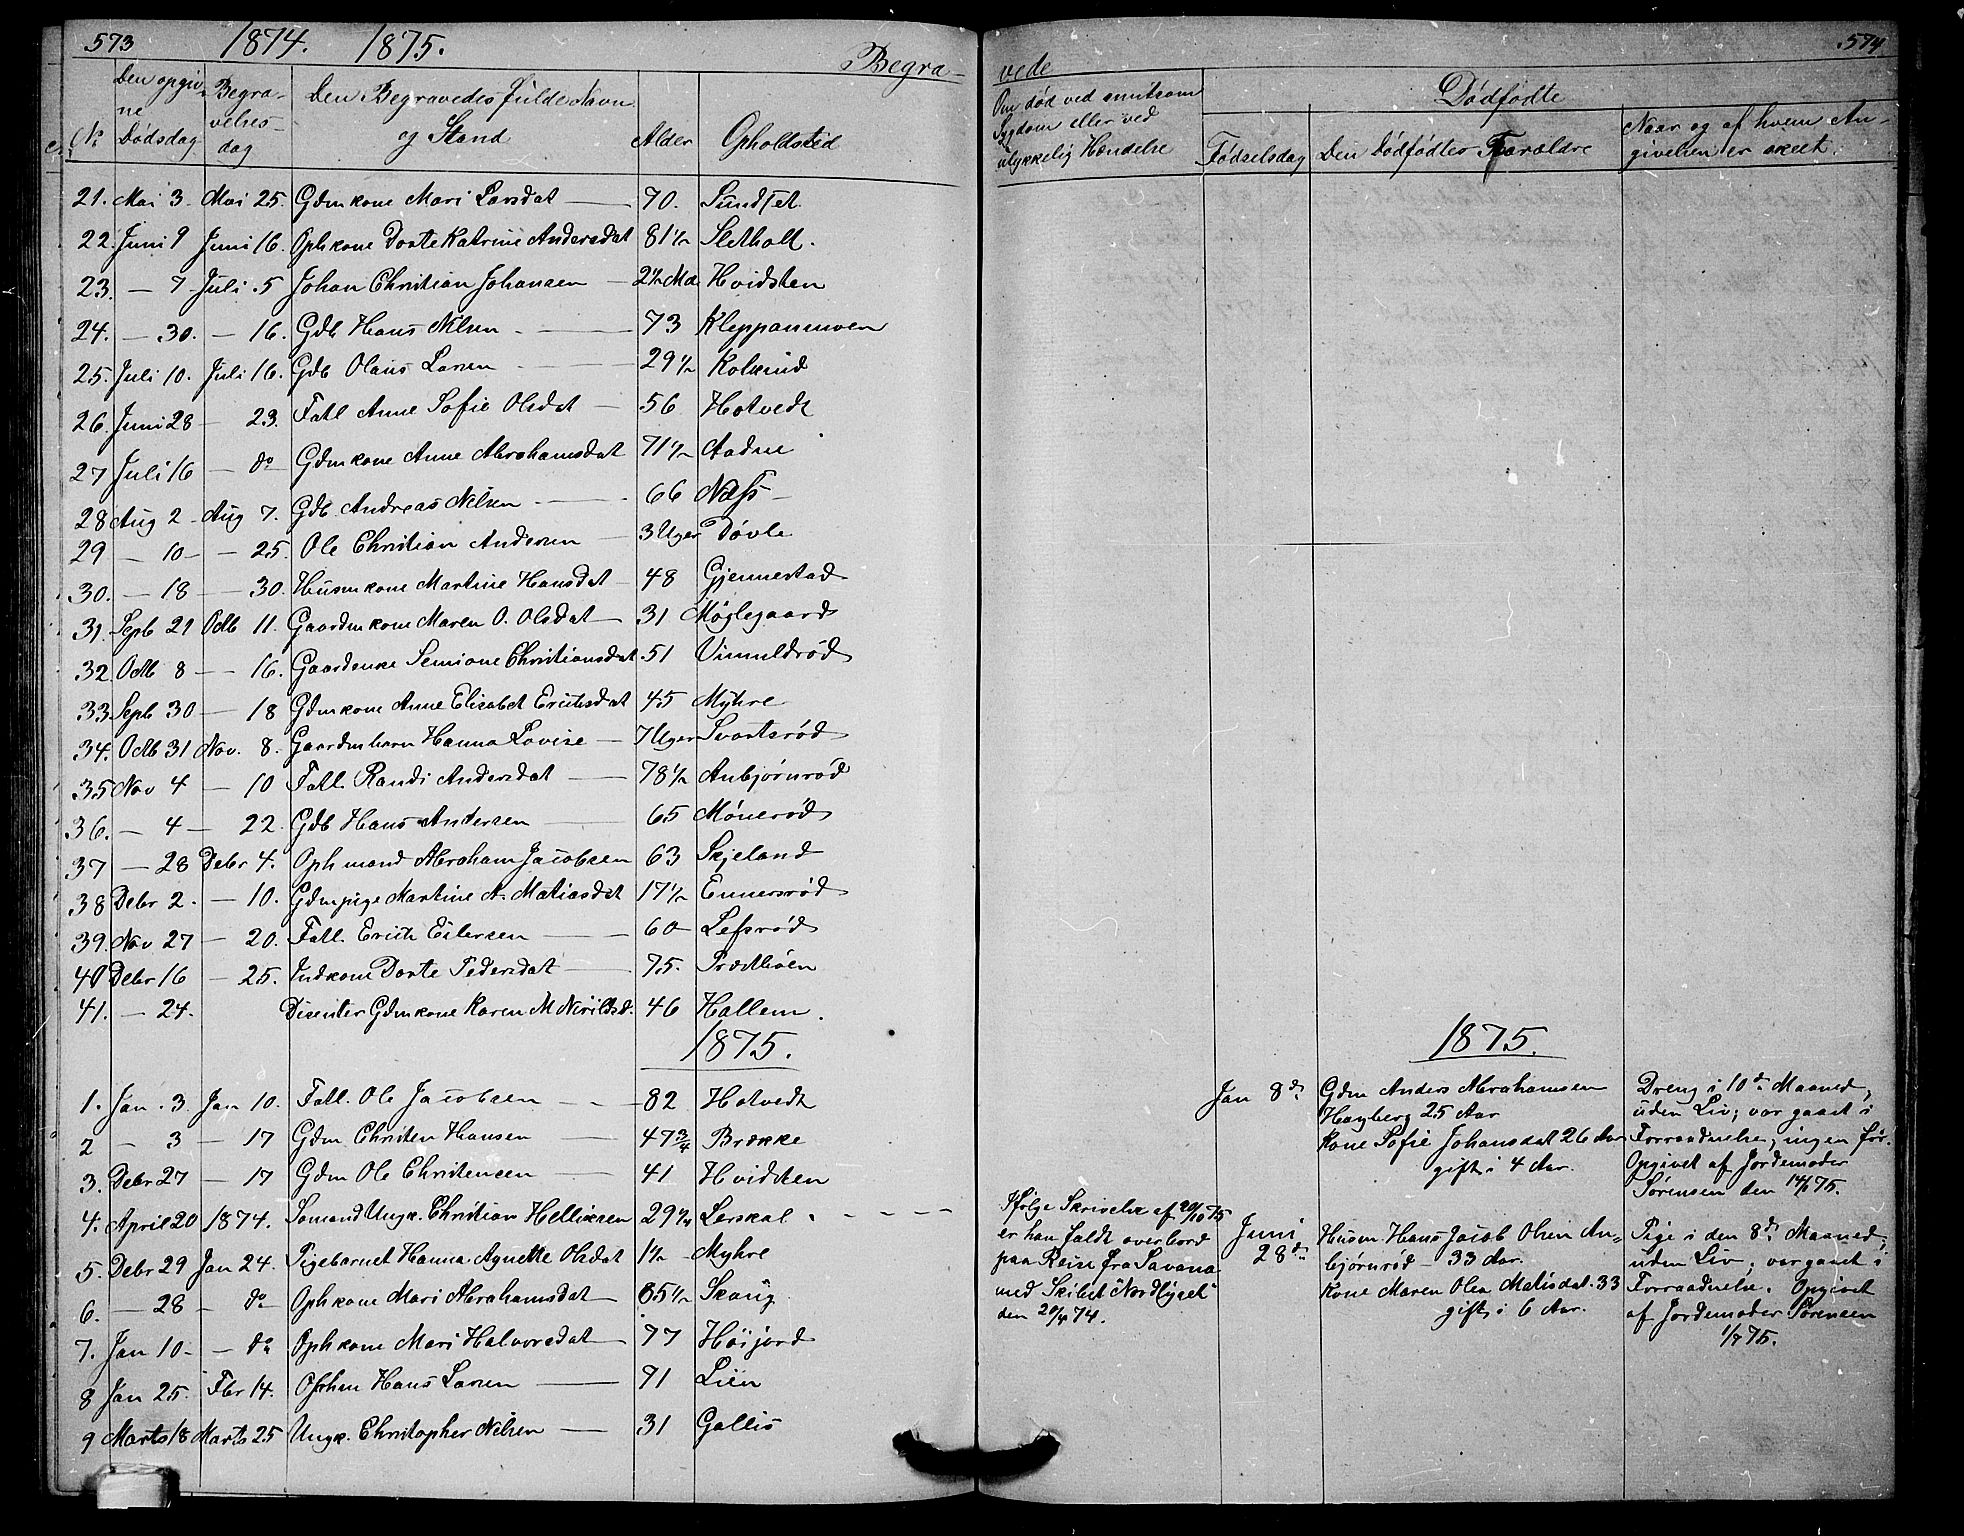 573 1874. 1875. Begra-
No Den opgiv-ne Dødsdag Begra-velses-dag Den Begravedes fulde Navn og Stand Alder Opholdsted
21. Mai 3 Mai 25. Gdmkone Mari Larsdat 70. Sundset
22. Juni 9 Juni 16. Ophkone Dorte Katrine Andersdat 81½ Sletholt.
23. — 7 Juli 5 Johan Christian Johansen 2½ Md Hvidsten
24. — 30. — 16. Gdb Hans Nilsen 73 Kleppanmoen
25. Juli 10. Juli 16. Gdb Olaus Larsen 29½ Kolkind
26. Juni 28 — 23. Fatl Anne Sofie Olsdat 56 Hotvedt
27 Juli 16 — do Gdmkone Anne Abrahamsdat 71½ Aadne
28 Aug 2 Aug 7. Gdb. Andreas Nilsen 66 Næss
29 — 10 — 25. Ole Christian Andersen 3 Uger Døvle
30. — 18 — 30. Husmkone Martine Hansdat 48 Gjennestad
31. Septb 21 Octb 11. Gaardmkone Maren O. Olsdat 31 Møglegaard
32. Octb 8 — 16. Gaardenke Semione Christiansdat 51 Vimmeldrød
33 Septb 30 — 18 Gdmkone Anne Elisabet Erichsdat 45 Myhre
34. Octb 31 Nov. 8. Gaardmbarn Hanna Lovise 7 Uger Svartsrød
35 Nov 4 — 10 Fatl. Randi Andersdat 78½ Anbjørnrød
36. — 4 — 22. Gdb Hans Andersen 65 Mønerød
37 — 28 Decbr 4. Ophmand Abraham Jacobsen 63 Skjeland
38 Decbr 2. — 10. Gdmpige Martine A. Matiasdat 17½ Ennersrød
39. Nov 27 — 20. Fatl. Erich Eilersen 60 Lefsrød
40 Decbr 16 — 25. Indkone Dorte Pedersdat 75.
41. — 24. Disenter Gdmkone Karen M 46 Hallem.
1875.
1. Jan. 3. Jan 10. Fatl. Ole Jacobsen 82 Hotvedt
2 — 3 — 17 Gdm Christen Hansen 47¾ Brække
3. Decbr 27 — 17 Gdm Ole Christensen 41 Hvidsten
4. April 20 1874. Sømand Ungk. Christian Helliksen 29¼ Lerskal
5. Decbr 29 Jan 24. Pigebarnet Hanna Agnette Olsdat 1½ Myhre
6. — 28 — do Ophkone Mari Abrahamsdat 65½ Skoug
7. Jan 10 — do Ophkone Mari Halvorsdat 77 Höijord
8 Jan 25. Fbr 14. Ophm Hans Larsen 71 Lien
9 Marts 18 Marts 25 Ungk. Christopher Nilsen 31 Gallis
vede 574
Om død ved smitsom
Sygdom eller ved
ulykkelig Hændelse
Dødfødte
Fødselsdag Den Dødfødtes Forældre Naar og af hvem An-
givelsen er skeet.
1875.
Jan 8de Gdm Anders Abrahamsen
Høyberg 25 Aar
Kone Sofie Johansdat 26 Aar
gift i 4 Aar.
Dreng i 10de Maaned,
uden Liv; var gaaet i
Forraadnelse; ingen før.
Opgivet af Jordemoder
Sørensen den 14/1 75.
Ifølge Skrivelse af 20/10 75
er han faldt overbord
paa Reise fra Savana
med Skibet "Nordlyset"
den 20/4 74.
Juni
28de
Husm. Hans Jacob Olsen An-
bjørnrød 33 Aar.
Kone Maren Olea Matisdat. 33
gift i 6 Aar.
Pige i den 8de Maaned,
uden Liv; var gaaet i
Forraadnelse. Opgivet
af Jordemoder Sørensen
1/7 75.